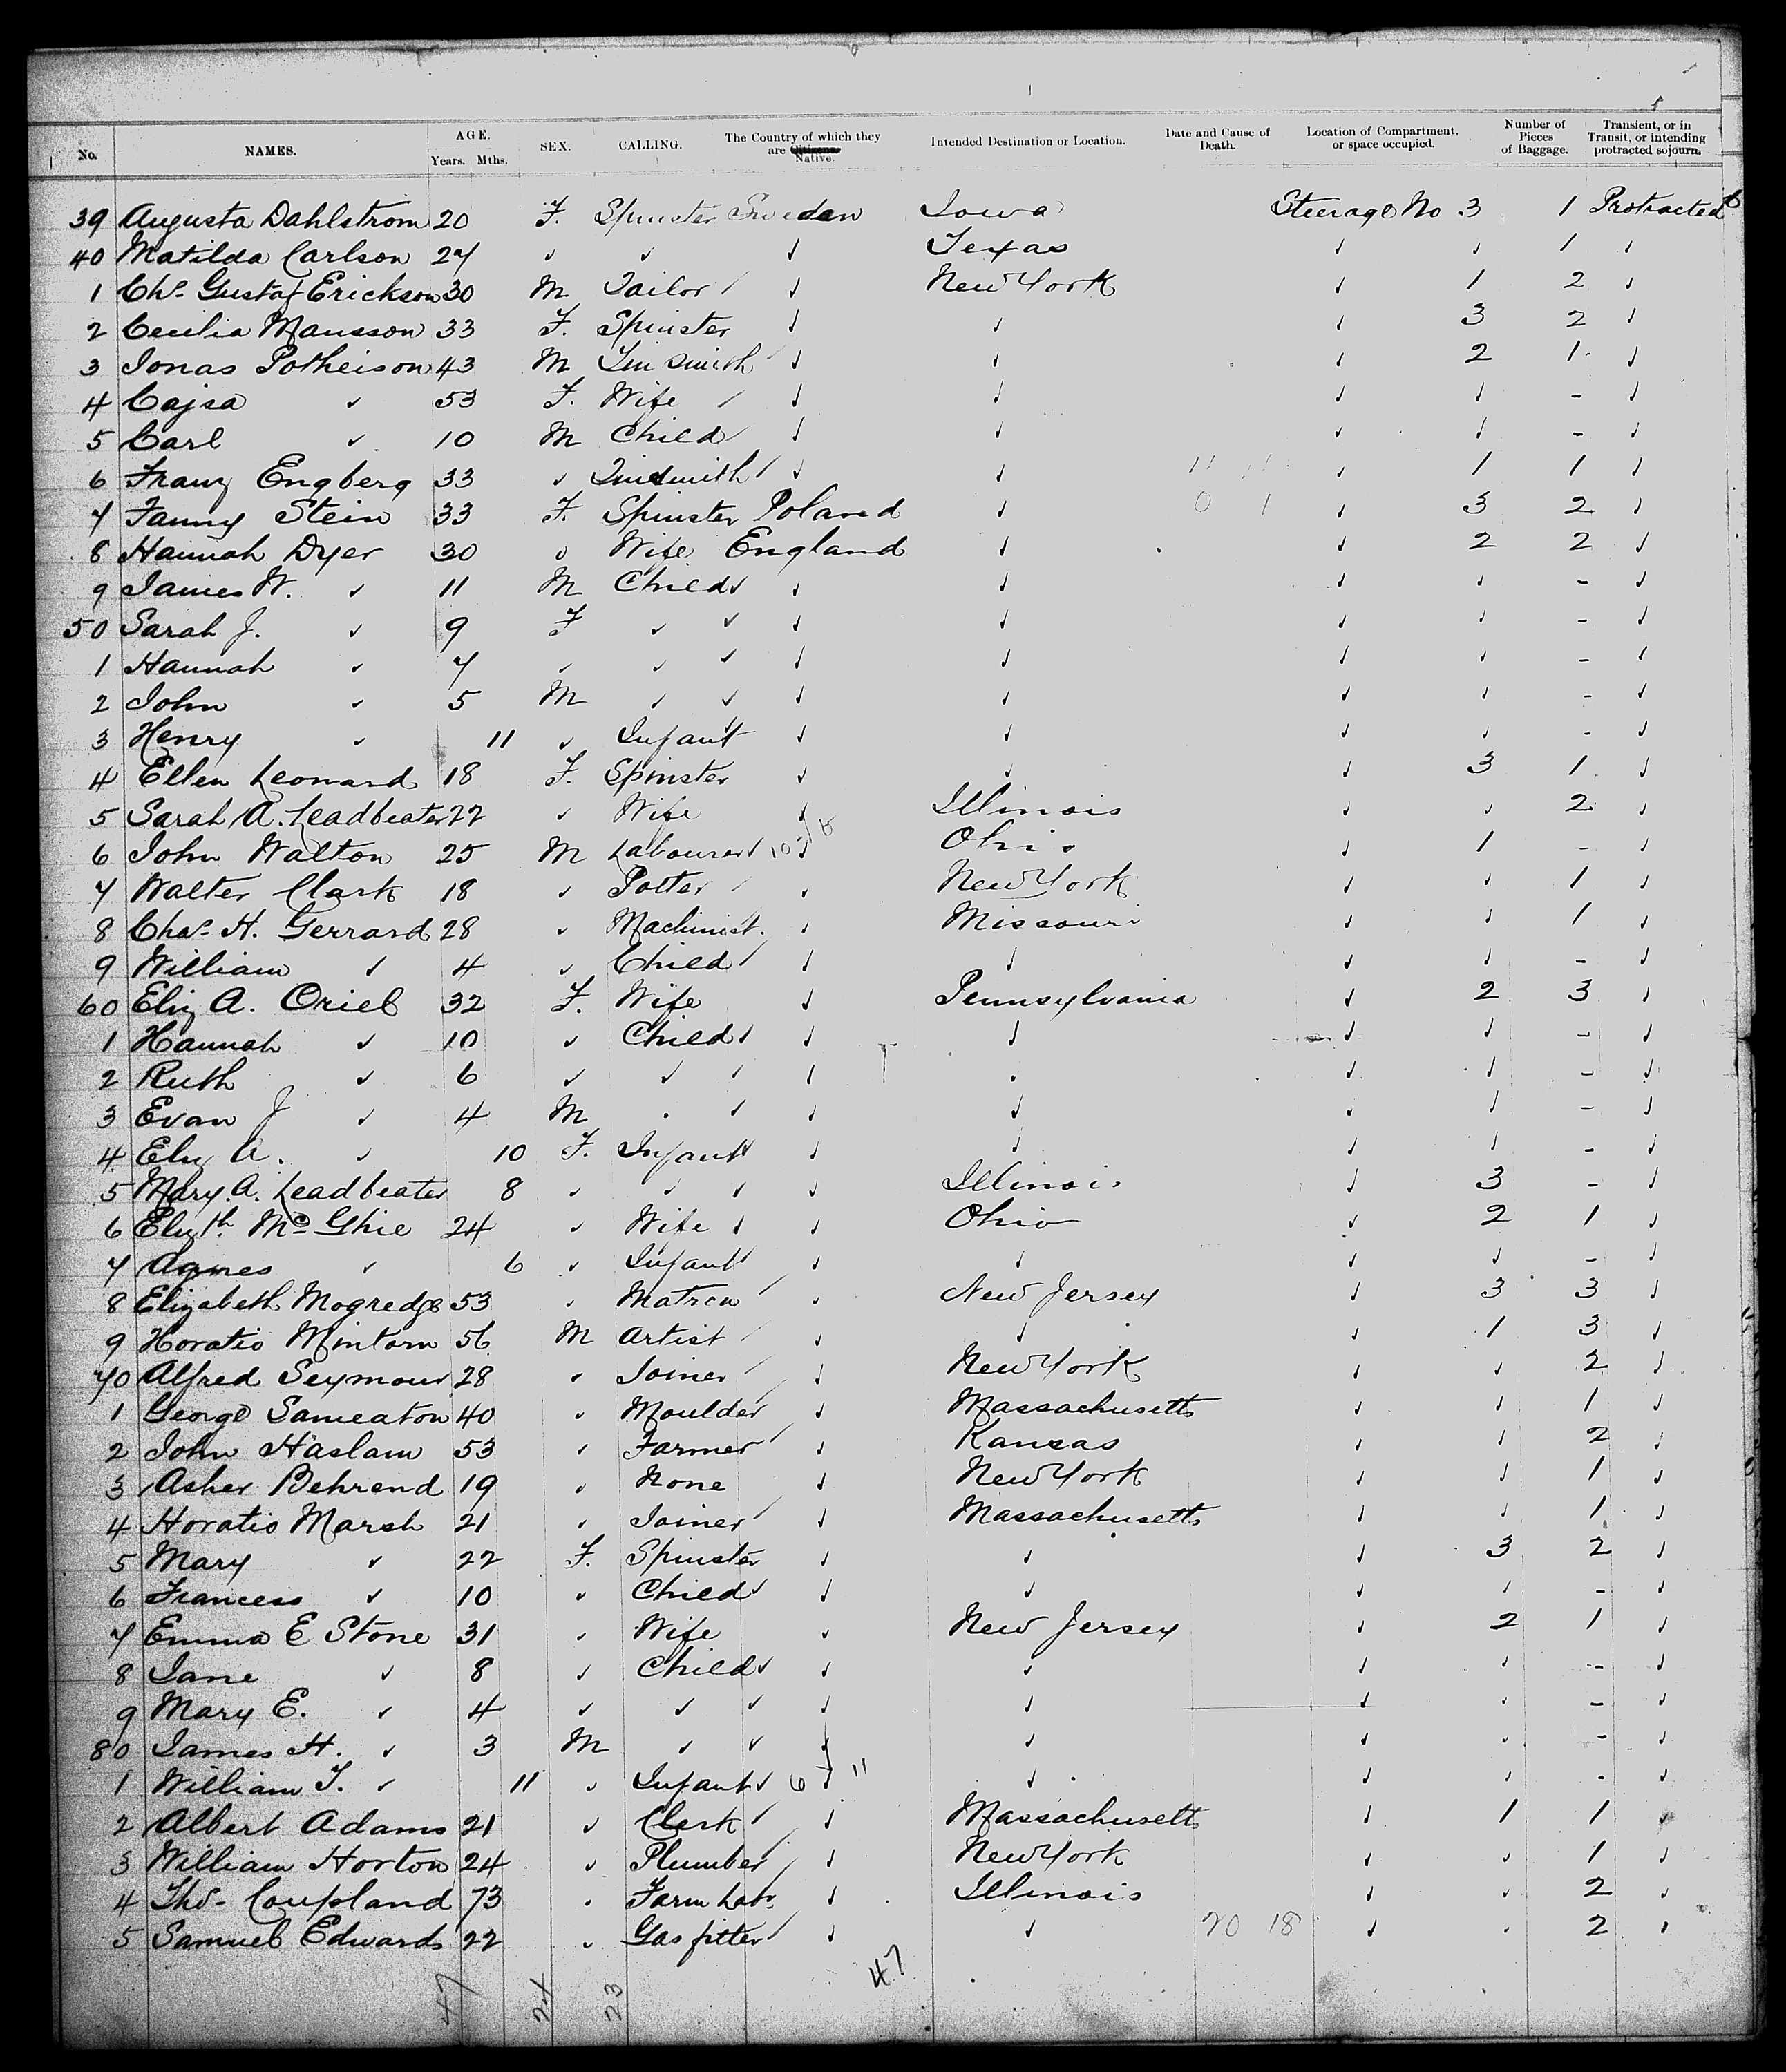 No. NAMES. AGE. Years. Mths. SEX. CALLING. The Country of which they are Citizens Native. Intended Destination or Location. Date and Cause of Death. Location of Compartment, or space occupied. Number of Pieces of Baggage. Transient, or in Transit, or intending protracted sojourn.
39 Augusta Dahlstrom 20 F. Spinster Sweden Iowa Steerage No 3 1 Protracted
40 Matilda Carlson 24 ✓ ✓ ✓ Texas ✓ ✓ 1 ✓
1 Chs. Gustaf Erickson 30 M Tailor ✓ New York ✓ 1 2 ✓
2 Cecilia Mansson 33 F. Spinster ✓ ✓ ✓ 3 2 ✓
3 Jonas Potheison 43 M Tin Smith ✓ ✓ ✓ 2 1 ✓
4 Cajsa ✓ 53 F. Wife ✓ ✓ ✓ ✓ - ✓
5 Carl ✓ 10 M Child ✓ ✓ ✓ ✓ - ✓
6 Franz Engberg 33 ✓ Tinsmith ✓ ✓ 11 11 ✓ 1 1 ✓
7 Fanny Stein 33 F. Spinster Poland ✓ 0 1 ✓ 3 2 ✓
8 Hannah Dyer 30 ✓ Wife England ✓ ✓ 2 2 ✓
9 James W. ✓ 11 M Child ✓ ✓ ✓ ✓ - ✓
50 Sarah J. ✓ 9 F ✓ ✓ ✓ ✓ ✓ - ✓
1 Hannah ✓ 7 ✓ ✓ ✓ ✓ ✓ ✓ - ✓
2 John ✓ 5 M ✓ ✓ ✓ ✓ ✓ - ✓
3 Henry ✓ 11 ✓ Infant ✓ ✓ ✓ ✓ - ✓
4 Ellen Leonard 18 F. Spinster ✓ ✓ ✓ 3 1 ✓
5 Sarah A. Leadbeater 22 ✓ Wife ✓ Illinois ✓ ✓ 2 ✓
6 John Walton 25 M Labourer ✓ Ohio ✓ 1 - ✓
7 Walter Clark 18 ✓ Potter ✓ New York ✓ ✓ 1 ✓
8 Chas. H. Gerrard 28 ✓ Machinist. ✓ Missouri ✓ ✓ 1 ✓
9 William ✓ 4 ✓ Child ✓ ✓ ✓ ✓ - ✓
60 Eliz A. Oriel 32 F. Wife ✓ Pennsylvania ✓ 2 3 ✓
1 Hannah ✓ 10 ✓ Child ✓ ✓ ✓ ✓ - ✓
2 Ruth ✓ 6 ✓ ✓ ✓ ✓ ✓ ✓ - ✓
3 Evan J ✓ 4 M ✓ ✓ ✓ ✓ ✓ - ✓
4 Eliz A. ✓ 10 F. Infant ✓ ✓ ✓ ✓ - ✓
5 Mary. A. Leadbeater 8 ✓ ✓ ✓ Illinois ✓ 3 - ✓
6 Elizth. McGhie 24 ✓ Wife ✓ Ohio ✓ 2 1 ✓
7 Agnes ✓ 6 ✓ Infant ✓ ✓ ✓ ✓ - ✓
8 Elizabeth Mogredge 53 ✓ Matron ✓ New Jersey ✓ 3 3 ✓
9 Horatio Mintorn 56 M Artist ✓ ✓ ✓ 1 3 ✓
70 Alfred Seymour 28 ✓ Joiner ✓ New York ✓ ✓ 2 ✓
1 George Sameaton 40 ✓ Moulder ✓ Massachusetts ✓ ✓ 1 ✓
2 John Haslam 53 ✓ Farmer ✓ Kansas ✓ ✓ 2 ✓
3 Asher Behrend 19 ✓ None ✓ New York ✓ ✓ 1 ✓
4 Horatio Marsh 21 ✓ Joiner ✓ Massachusetts ✓ ✓ 1 ✓
5 Mary ✓ 22 F. Spinster ✓ ✓ ✓ 3 2 ✓
6 Francess ✓ 10 ✓ Child ✓ ✓ ✓ ✓ - ✓
7 Emma E Stone 31 ✓ Wife ✓ New Jersey ✓ 2 1 ✓
8 Jane ✓ 8 ✓ Child ✓ ✓ ✓ ✓ - ✓
9 Mary E. ✓ 4 ✓ ✓ ✓ ✓ ✓ ✓ - ✓
80 James H. ✓ 3 M ✓ ✓ ✓ ✓ ✓ - ✓
1 William T. ✓ 11 ✓ Infant ✓ 6 11 ✓ ✓ ✓ - ✓
2 Albert Adams 21 ✓ Clerk ✓ Massachusetts ✓ 1 1 ✓
3 William Horton 24 ✓ Plumber ✓ New York ✓ ✓ 1 ✓
4 Thos. Coupland 73 ✓ Farm Labr. ✓ Illinois ✓ ✓ 2 ✓
5 Samuel Edwards 22 ✓ Gas fitter ✓ ✓ 20 18 ✓ ✓ 2 ✓
47 24 23 47